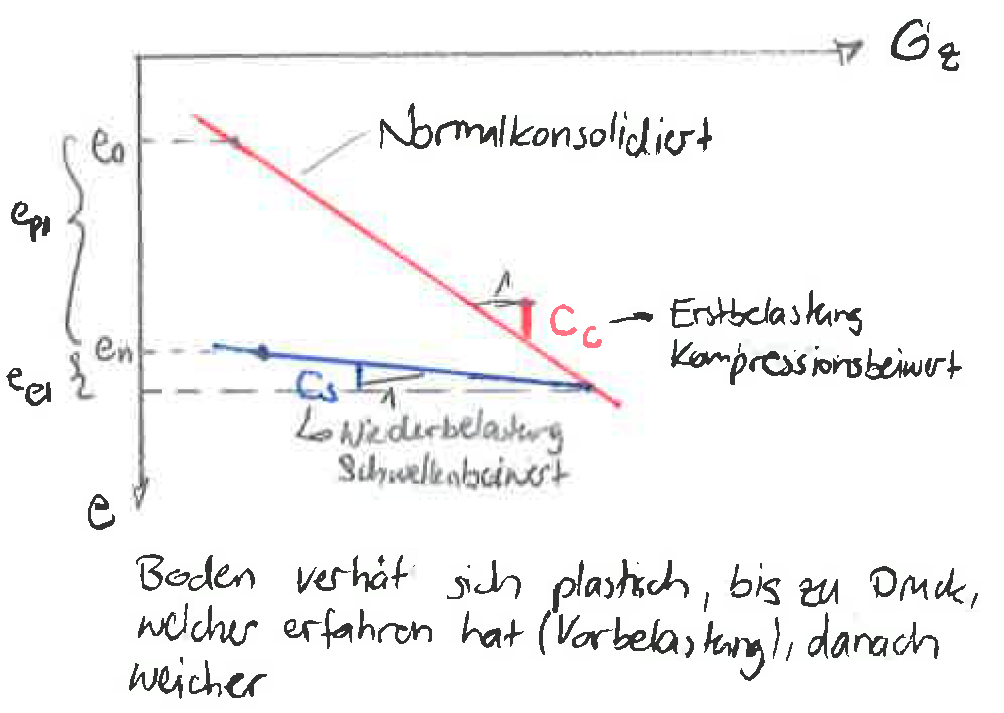 σz
e0
Normalkonsolidiert
epl
1
Cc → Erstbelastung
Kompressionsbeiwert
en
eel
Cs
1
↳ Wiederbelastung
Schwellenbeiwert
e
Boden verhät sich plastisch, bis zu Druck,
welcher erfahren hat (Vorbelastung), danach
weicher